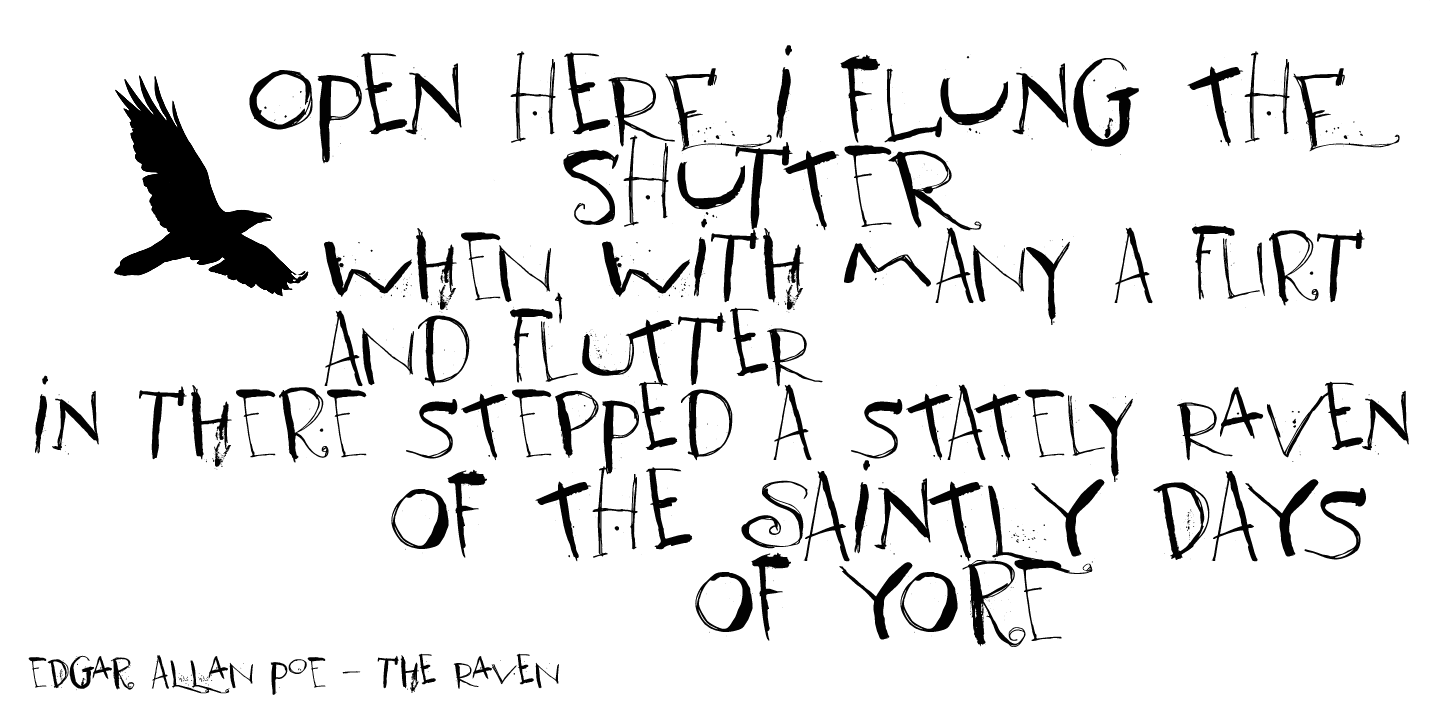 OPEN HERE i FLUNG THE
SHUTTER
WHEN, WiTH MANY A FLIRT
AND FLUTTER
iN THERE STEPPED A STATELY RAVEN
OF THE SAiNTLY DAYS
OF YORE
EDGAR ALLAN POE – THE RAVEN